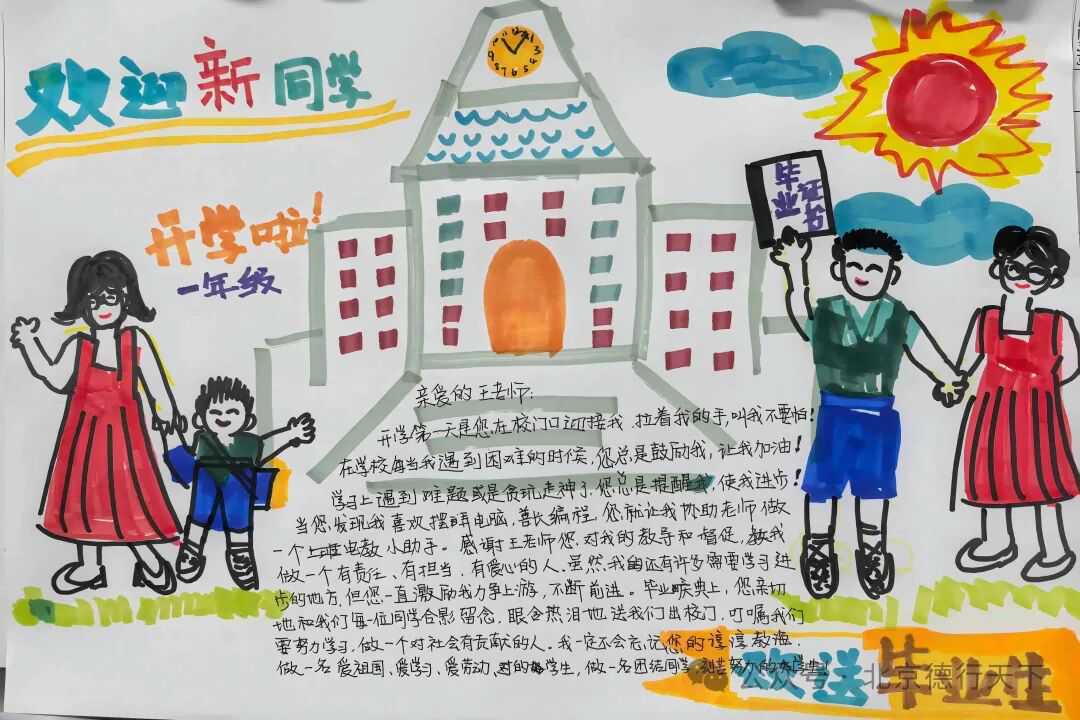 欢迎新同学
开学啦!
一年级
毕业
亲爱的王老师:
开学第一天是您在校门口迎接我,拉着我的手,叫我不要怕!
在学校每当我遇到困难的时候,您总是鼓励我,让我加油!
学习上遇到难题或是贪玩走神了,您总是提醒我,使我进步!
当您发现我喜欢摆弄电脑,善长编程,您就让我协助老师做
一个上唯电教小助手。感谢王老师您,对我的教导和督促,教我
做一个有责任、有担当、有爱心的人。虽然,我的还有许多需要学习进
步的地方,但您一直激励我力争上游,不断前进。毕业典上,您亲切
地和我们每一位同学合影留念,眼含热泪地送我们出校门,叮嘱我们
要努力学习,做一个对社会有贡献的人。我一定不会忘记您的谆谆教诲,
做一名爱祖国、爱学习、爱劳动、的学生,做一名团结同学,刻苦努力的
欢送毕业生
公众号 北京德行天下